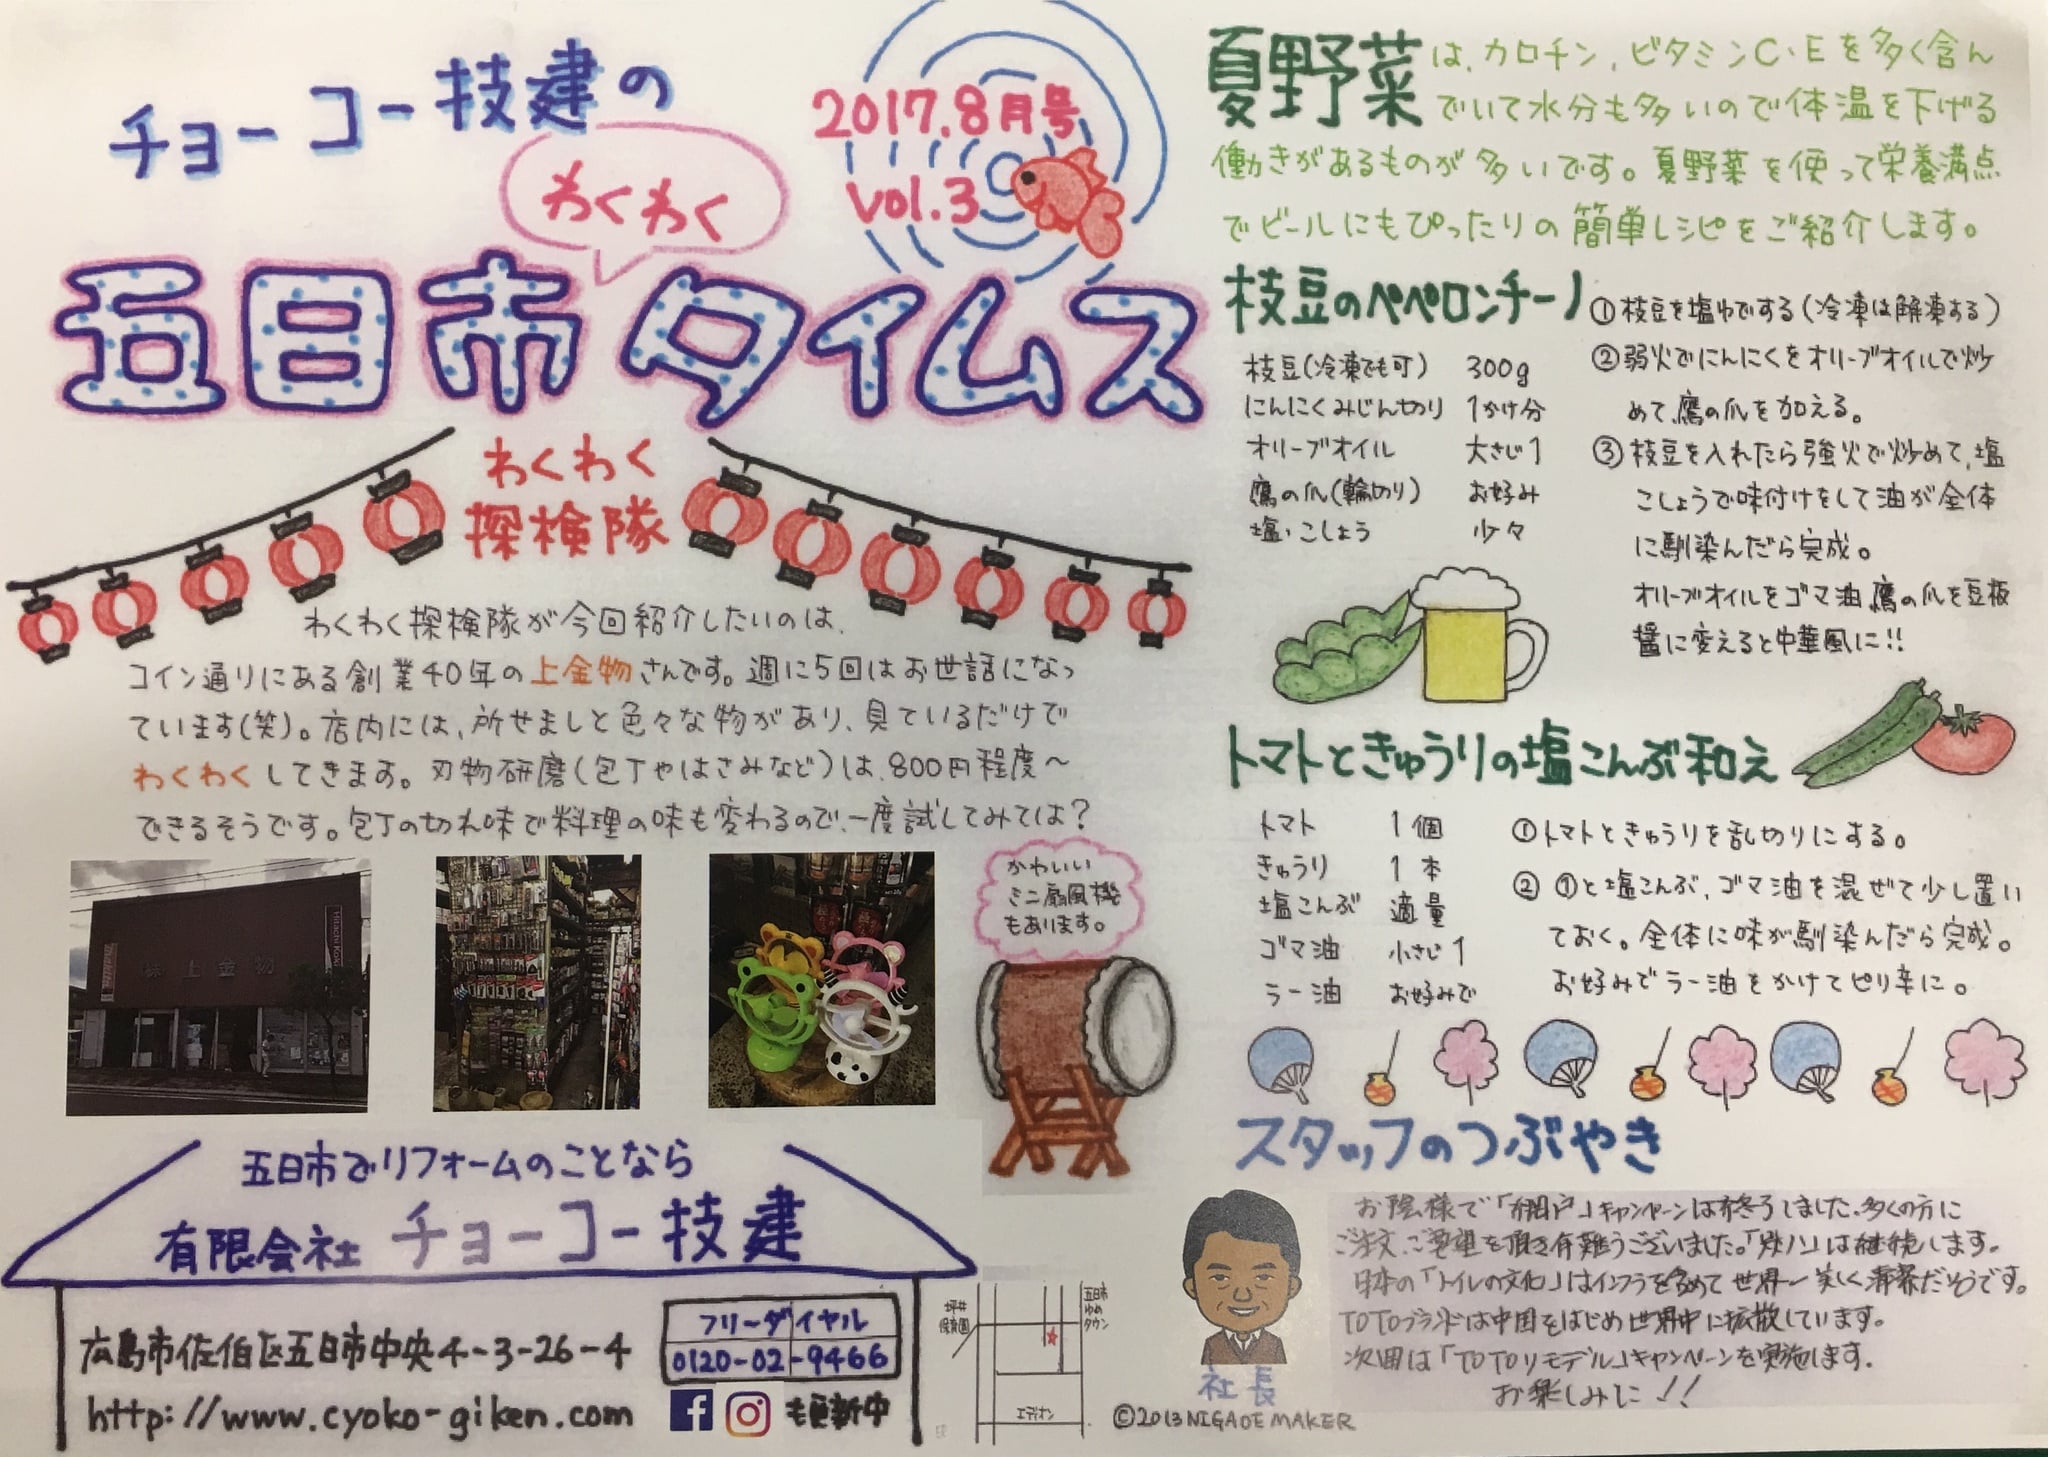 チョーコー技建の
わくわく
2017.8月号
vol.3
五日市タイムス
わくわく
探検隊
わくわく探検隊が今回紹介したいのは、
コイン通りにある創業40年の上金物さんです。週に5回はお世話になっ
ています(笑)。店内には、所せましと色々な物があり、見ているだけで
わくわくしてきます。刃物研磨(包丁やはさみなど)は、800円程度～
できるそうです。包丁の切れ味で料理の味も変わるので、一度試してみては?
㈱ 上金物
makita
Hitachi Koki
かわいい
ミニ扇風機
もあります。
五日市でリフォームのことなら
有限会社 チョーコー技建
広島市佐伯区五日市中央4-3-26-4
http://www.cyoko-giken.com
フリーダイヤル
0120-02-9466
も更新中
坪井
保育園
五日市
ゆめ
タウン
エディオン
夏野菜は、カロチン、ビタミンC・Eを多く含ん
でいて水分も多いので体温を下げる
働きがあるものが多いです。夏野菜を使って栄養満点
でビールにもぴったりの簡単レシピをご紹介します。
枝豆のペペロンチーノ
枝豆(冷凍でも可) 300g
にんにくみじん切り 1かけ分
オリーブオイル 大さじ1
鷹の爪(輪切り) お好み
塩・こしょう 少々
①枝豆を塩ゆでする(冷凍は解凍する)
②弱火でにんにくをオリーブオイルで炒
めて、鷹の爪を加える。
③枝豆を入れたら強火で炒めて、塩
こしょうで味付けをして油が全体
に馴染んだら完成。
オリーブオイルをゴマ油、鷹の爪を豆板
醤に変えると中華風に!!
トマトときゅうりの塩こんぶ和え
トマト 1個
きゅうり 1本
塩こんぶ 適量
ゴマ油 小さじ1
ラー油 お好みで
①トマトときゅうりを乱切りにする。
②①と塩こんぶ、ゴマ油を混ぜて少し置い
ておく。全体に味が馴染んだら完成。
お好みでラー油をかけてピリ辛に。
スタッフのつぶやき
お陰様で「網戸」キャンペーンは終了しました。多くの方に
ご注文、ご要望を頂き有難うございました。は継続します。
日本の「トイレの文化」はインフラを含めて世界一美しく清潔だそうです。
TOTOブランドは中国をはじめ世界中に拡散しています。
次回は「TOTOリモデル」キャンペーンを実施します。
お楽しみに!!
社長
©2013 NIGAOE MAKER